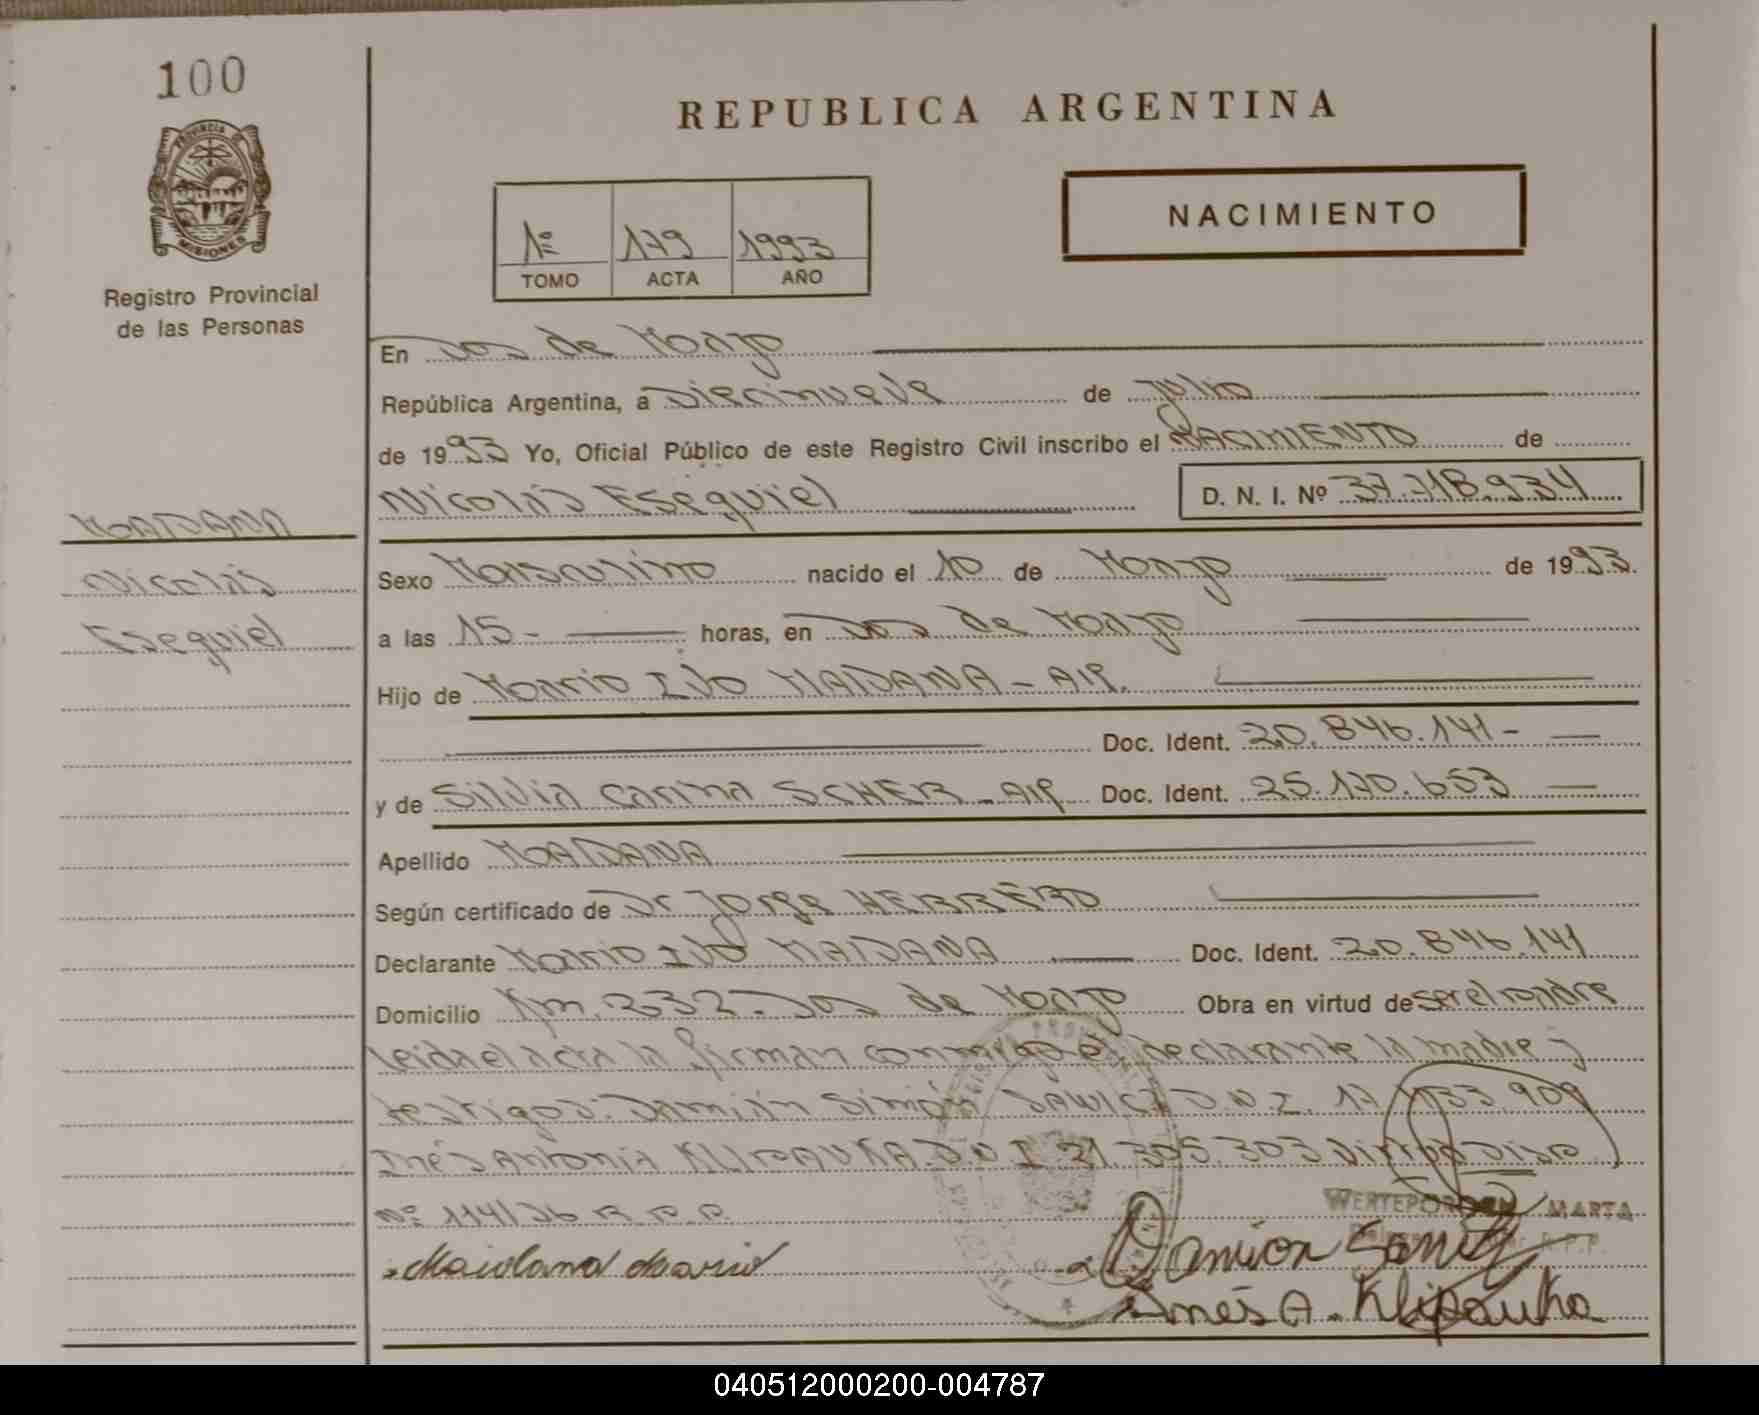 100
REPUBLICA ARGENTINA
PROVINCIA DE
MISIONES
Registro Provincial
de las Personas
NACIMIENTO
1º 179 1993
TOMO ACTA AÑO
En Dos de Mayo
República Argentina, a Diecinueve de Julio
de 1993 Yo, Oficial Público de este Registro Civil inscribo el NACIMIENTO de
Nicolás Esequiel D. N. I. Nº 37.718.934
MAIDANA
Nicolás
Esequiel
Sexo Masculino nacido el 10 de Mayo de 1993.
a las 15- horas, en Dos de Mayo
Hijo de Mario Ivo MAIDANA - Arg.
Doc. Ident. 20.846.141-
y de Silvia Carina SCHER - Arg. Doc. Ident. 25.170.653
Apellido MAIDANA
Según certificado de Dr Jorge HERRERO
Declarante Mario Ivo MAIDANA Doc. Ident. 20.846.141
Domicilio Km. 232 - Dos de Mayo Obra en virtud de ser el padre
leida el acta la firman conmigo el declarante la madre y
testigos: Damián Simón SAWICZ D.N.I. 17.133.909
Inés Antonia KLIPAUKA D.N.I 21.305.303 Disp.
Nº 114/76 R.P.P.
MARTA
R.P.P.
Maidana Mario
Damian
Inés A. Klipauka
040512000200-004787